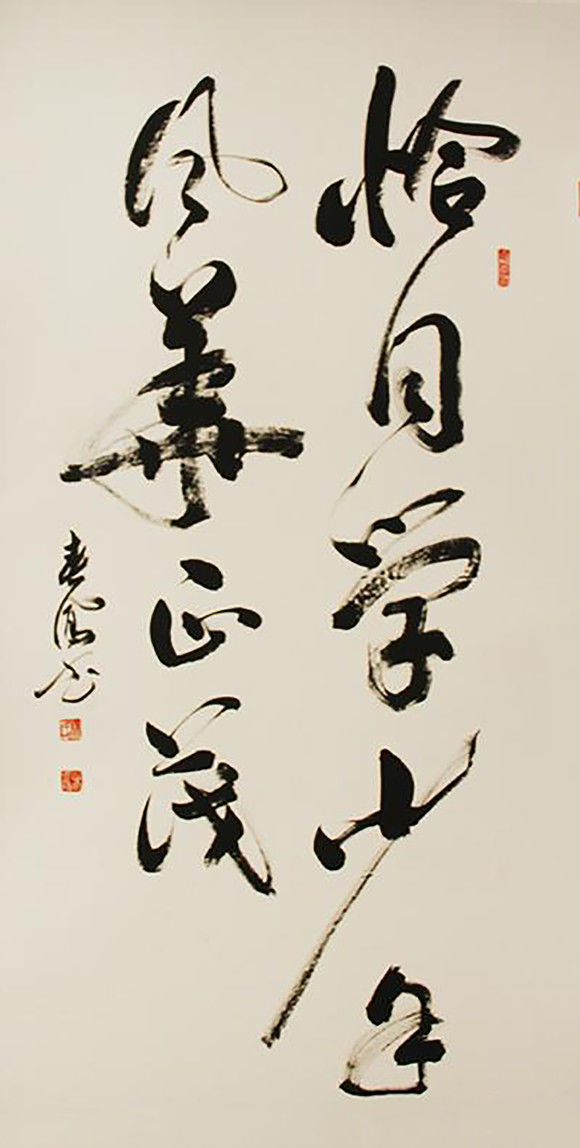 恰同学少年
风华正茂